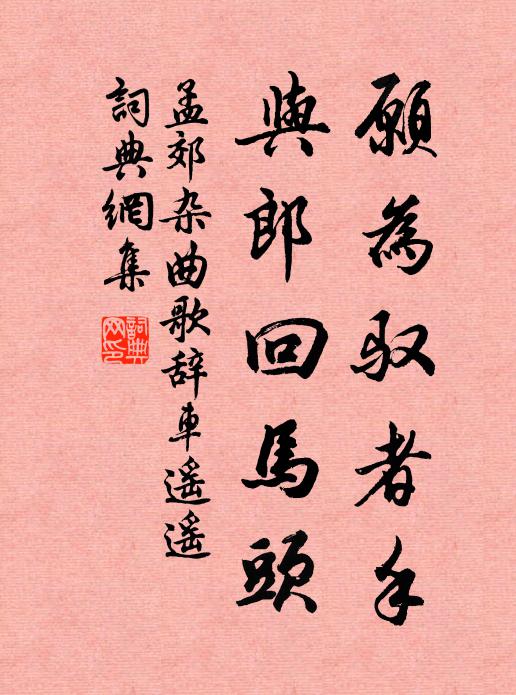 願為驭者手
與郎回馬頭
孟郊杂曲歌辞車遥遥
詞典網集
詞典網印